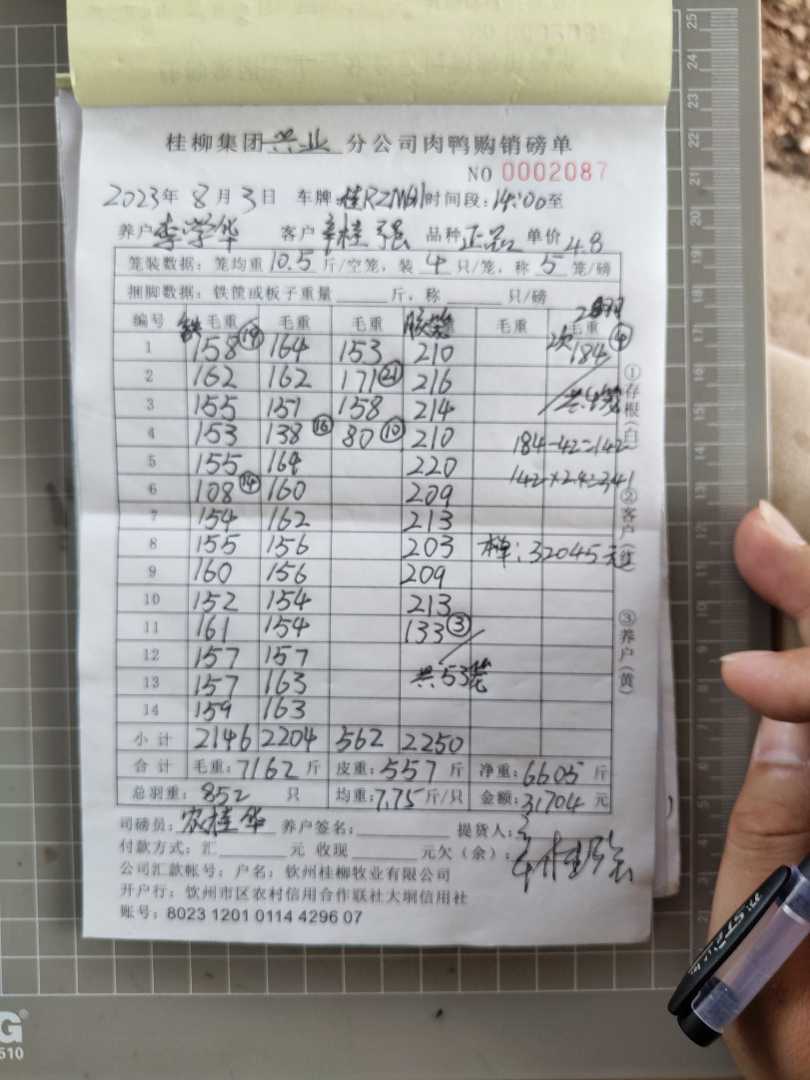 桂柳集团 兴业 分公司肉鸭购销磅单
NO 0002087
2023年 8月 3日 车牌: 时间段: 14:00至
养户 李学华 客户 辛桂强 品种 正品 单价 4.8
笼装数据: 笼均重 10.5 斤/空笼, 装 4 只/笼, 称 5 笼/磅
捆脚数据: 铁筐或板子重量 斤, 称 只/磅
编号 毛重 毛重 毛重 胶笼 毛重 毛重
1 158 ⑲ 164 153 210 2次 184 ④
2 162 162 171 ㉑ 216
3 155 151 158 214 共4笼
4 153 138 ⑯ 80 ⑩ 210 184-42=142
5 155 164 220 142×2.4=341
6 108 ⑭ 160 209
7 154 162 213
8 155 156 203 32045元
9 160 156 209
10 152 154 213
11 161 154 133 ③
12 157 157
13 157 163 共53笼
14 159 163
小计 2146 2204 562 2250
合计 毛重: 7162 斤 皮重: 557 斤 净重: 6605 斤
总羽重: 852 只 均重: 7.75 斤/只 金额: 31704 元
司磅员: 农桂华 养户签名: 提货人:
付款方式: 汇 元 收现 元欠(余):
公司汇款帐号: 户名: 钦州桂柳牧业有限公司
开户行: 钦州市区农村信用合作联社大垌信用社
账号: 8023 1201 0114 4296 07
①存根(白) ②客户(红) ③养户(黄)